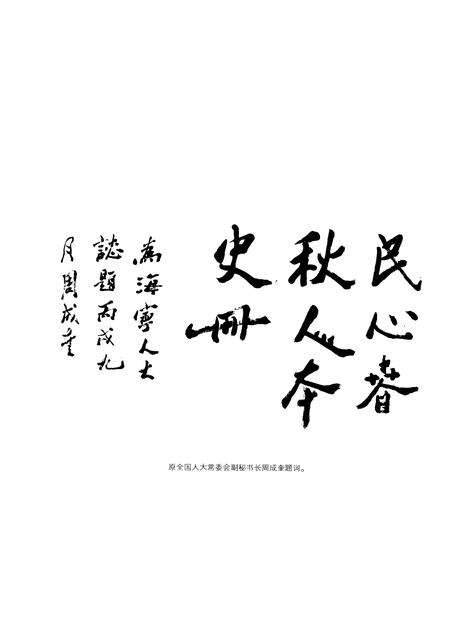 民心春
秋人本
史册
为海宁人大
志题丙戌九
月周成奎
原全国人大常委会副秘书长周成奎题词。